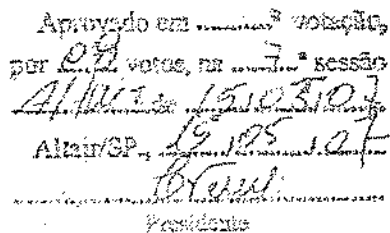 Aprovado em ........ª votação,
por 08 votos, na ..7..ª sessão
de 15,03,07
Altair/SP, 15,05,07
Presidente